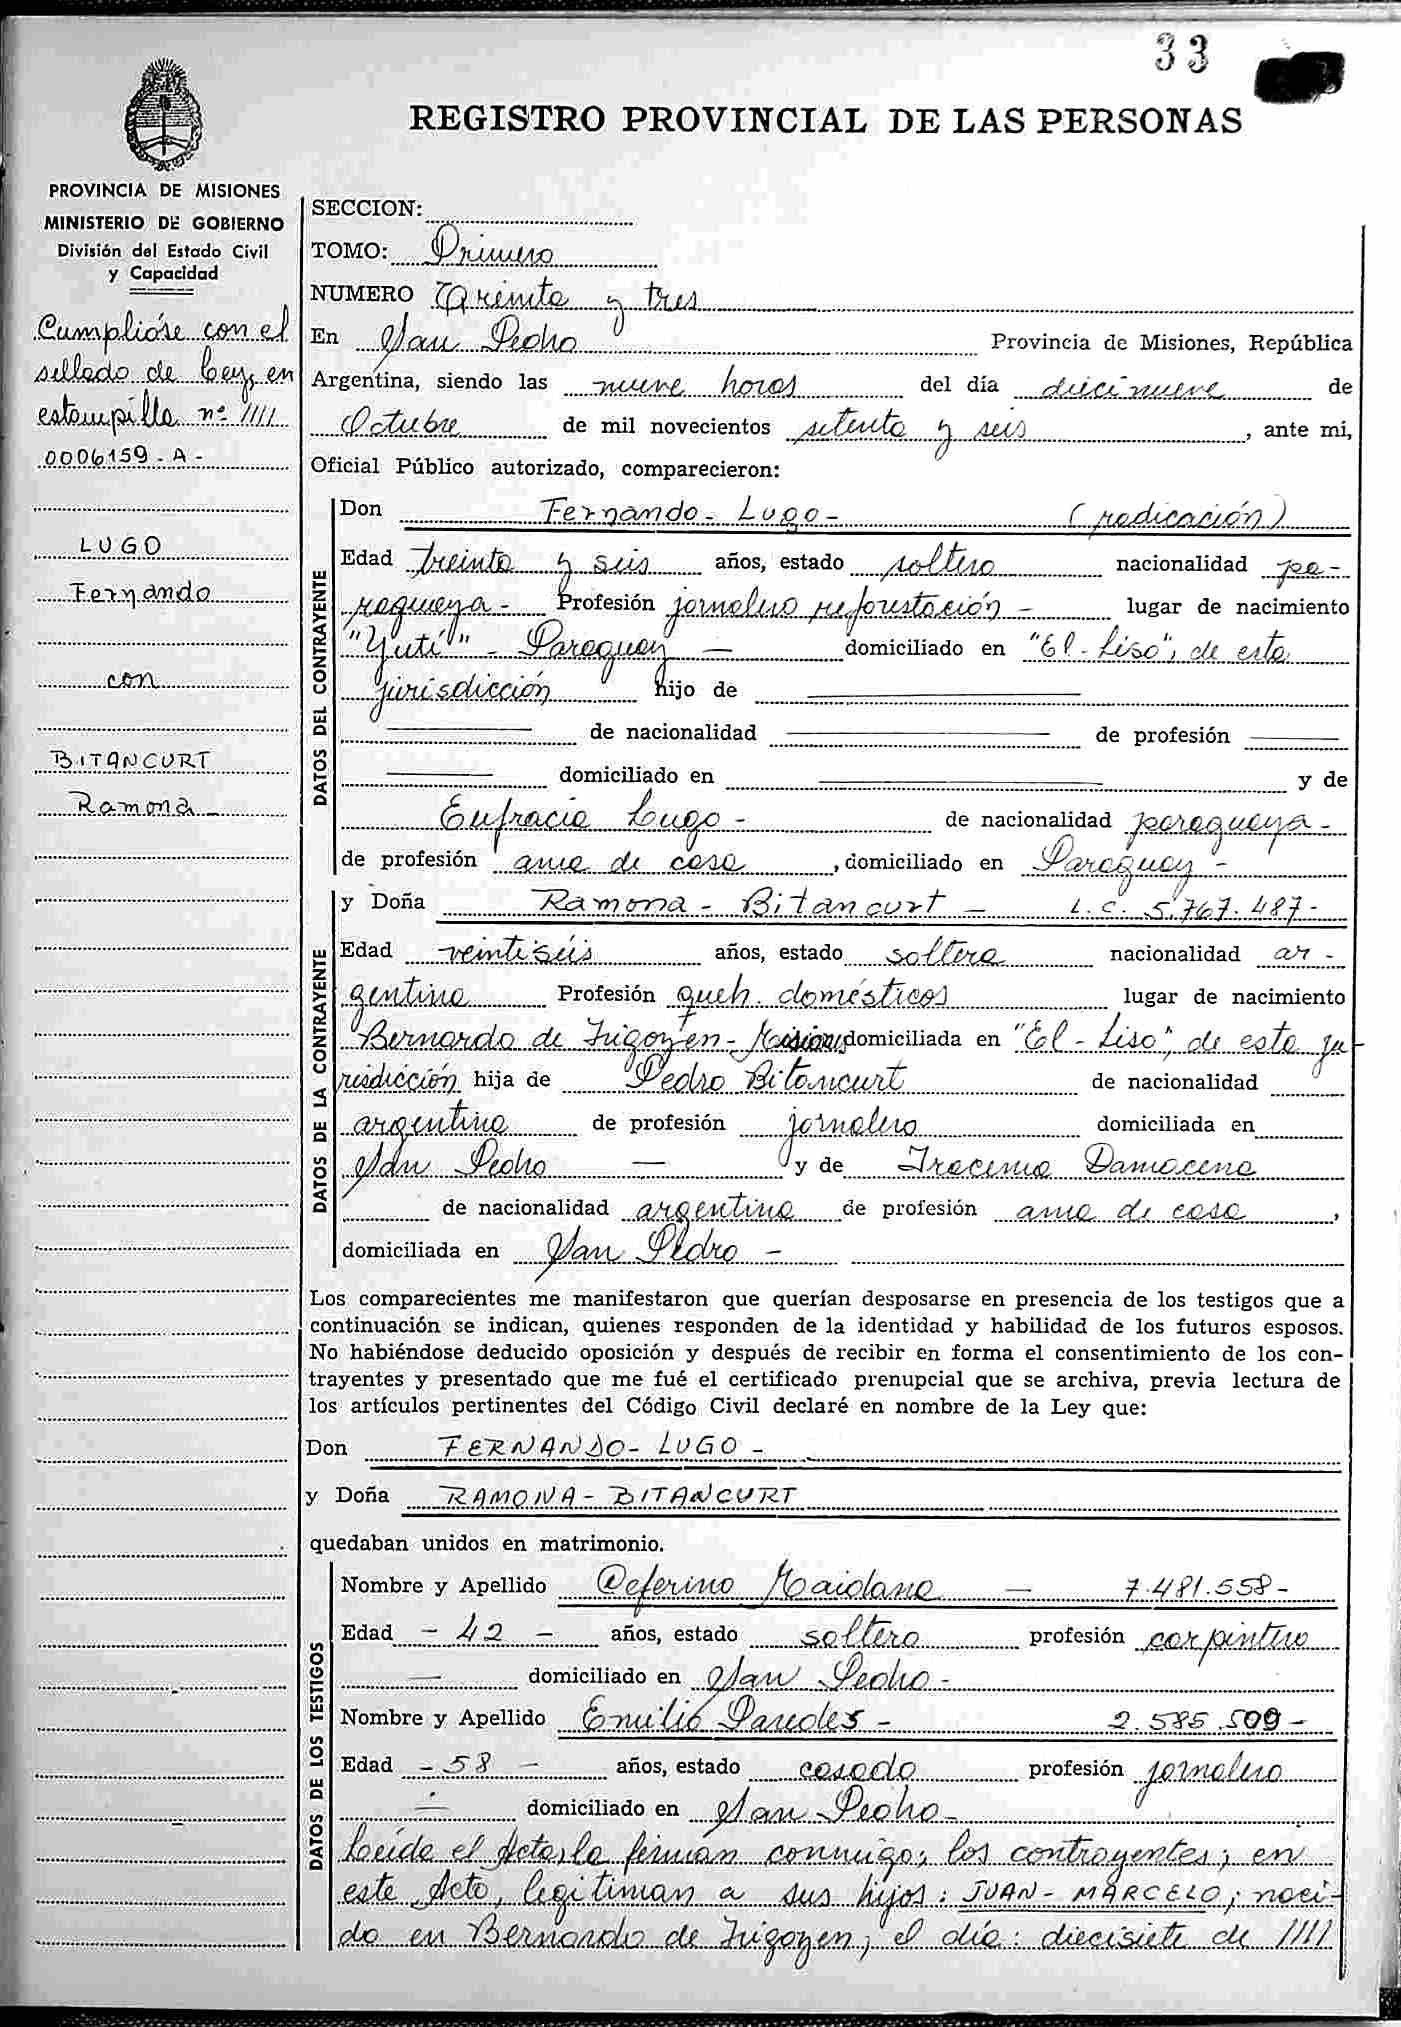 33
REGISTRO PROVINCIAL DE LAS PERSONAS
PROVINCIA DE MISIONES
MINISTERIO DE GOBIERNO
División del Estado Civil
y Capacidad
Cumplióse con el
sellado de Ley, en
estampilla nº ////
0006159 - A -
LUGO
Fernando
con
BITANCURT
Ramona -
SECCION:
TOMO: Primero
NUMERO Treinta y tres
En San Pedro Provincia de Misiones, República
Argentina, siendo las nueve horas del día diecinueve de
Octubre de mil novecientos setenta y seis, ante mi,
Oficial Público autorizado, comparecieron:
DATOS DEL CONTRAYENTE
Don Fernando - Lugo - (radicación)
Edad treinta y seis años, estado soltero nacionalidad pa-
raguaya - Profesión jornalero reforestación - lugar de nacimiento
"Yutí" - Paraguay — domiciliado en "El - Liso"; de esta
jurisdicción hijo de —
— de nacionalidad — de profesión —
— domiciliado en — y de
Eufracia Lugo - de nacionalidad paraguaya -
de profesión ama de casa, domiciliado en Paraguay -
DATOS DE LA CONTRAYENTE
y Doña Ramona - Bitancurt — L.C. 5.767.487-
Edad veintiséis años, estado soltera nacionalidad ar -
gentina Profesión queh. domésticos lugar de nacimiento
Bernardo de Irigoyen - Misiones domiciliada en "El - Liso", de esta ju-
risdicción hija de Pedro Bitancurt de nacionalidad
argentina de profesión jornalero domiciliada en
San Pedro — y de Iracema Damacena
de nacionalidad argentina de profesión ama de casa,
domiciliada en San Pedro -
Los comparecientes me manifestaron que querían desposarse en presencia de los testigos que a
continuación se indican, quienes responden de la identidad y habilidad de los futuros esposos.
No habiéndose deducido oposición y después de recibir en forma el consentimiento de los con-
trayentes y presentado que me fué el certificado prenupcial que se archiva, previa lectura de
los artículos pertinentes del Código Civil declaré en nombre de la Ley que:
Don FERNANDO - LUGO -
y Doña RAMONA - BITANCURT
quedaban unidos en matrimonio.
DATOS DE LOS TESTIGOS
Nombre y Apellido Ceferino Maidana — 7.481.558-
Edad - 42 - años, estado soltero profesión carpintero
— domiciliado en San Pedro -
Nombre y Apellido Emilio Paredes - 2.585.509 -
Edad - 58 - años, estado casado profesión jornalero
— domiciliado en San Pedro -
Leída el Acta, la firman conmigo; los contrayentes; en
este Acto, legitiman a sus hijos: JUAN - MARCELO; naci-
do en Bernardo de Irigoyen, el día: diecisiete de ////